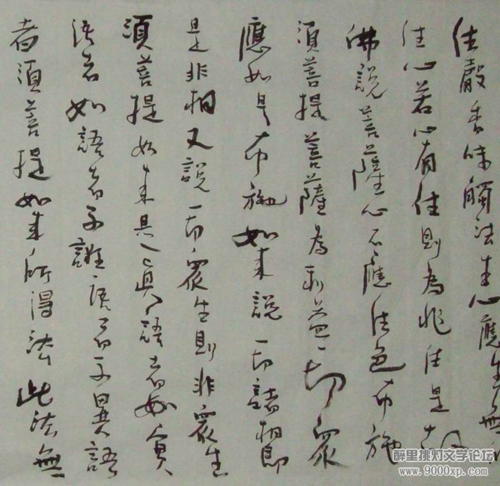 住聲香味觸法生心應生無
住心若心有住則為非住是故
佛說菩薩心不應住色布施
須菩提菩薩為利益一切眾
應如是布施如來說一切諸相即
是非相又說一切眾生則非眾生
須菩提如來是真語者實
語者如語者不誑語者不異語
者須菩提如來所得法此法無
醉里挑灯文学论坛
www.9000xp.com